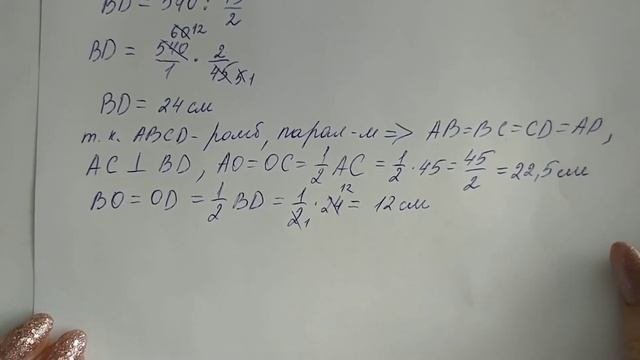 BD = 540 : 45/2
BD = 540/1 · 2/45 60 12 5 1
BD = 24 см
т.к. ABCD - ромб, парал-м => AB=BC=CD=AD,
AC ⊥ BD, AO=OC=1/2 AC = 1/2 · 45 = 45/2 = 22,5 см
BO = OD = 1/2 BD = 1/2 · 24 = 12 см 12 1